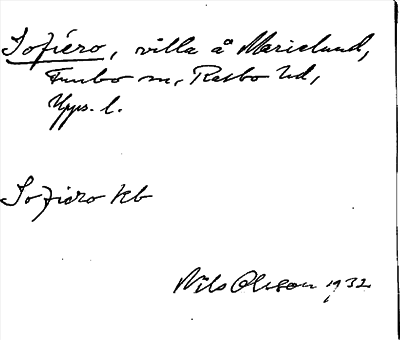 Sofiero, villa å Marielund,
Funbo sn, Rasbo hd,
Upps. l.
Sofiero kb
Nils Olsson 1932